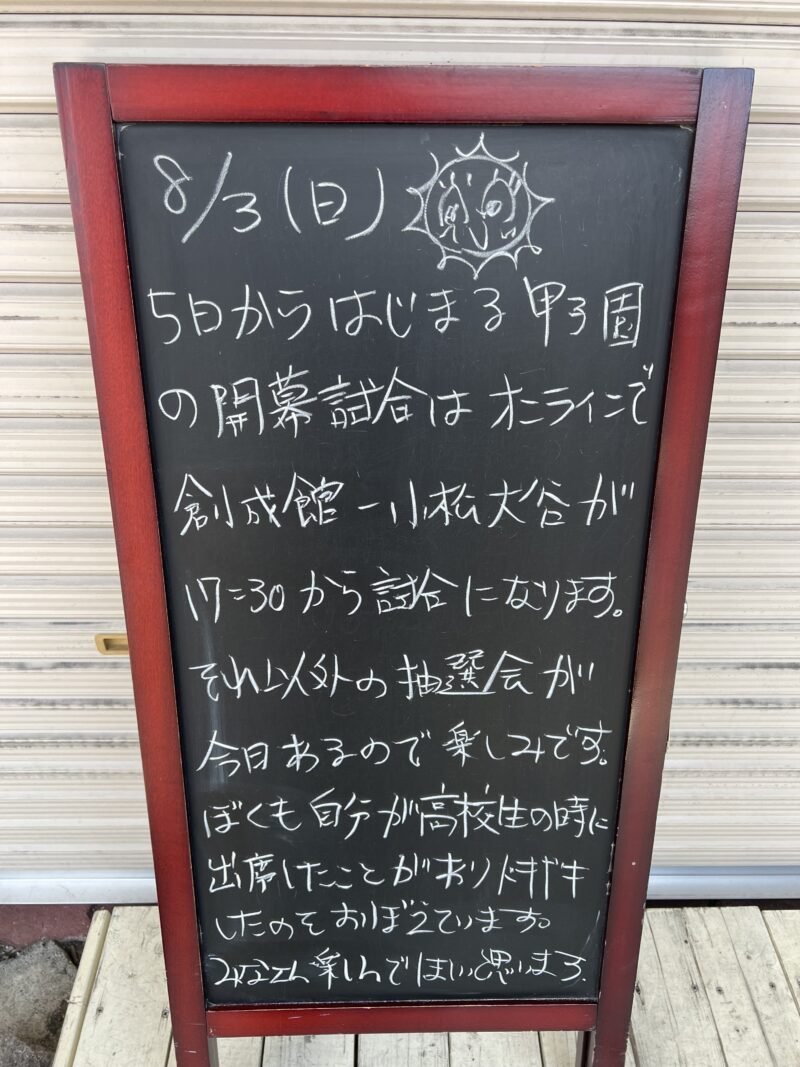 8/3(日)
5日からはじまる甲子園
の開幕試合はオンラインで
創成館-小松大谷が
17:30から試合になります。
それ以外の抽選会が
今日あるので楽しみです。
ぼくも自分が高校生の時に
出席したことがありドキドキ
したのをおぼえています。
みなさん楽しんでほしい思います.